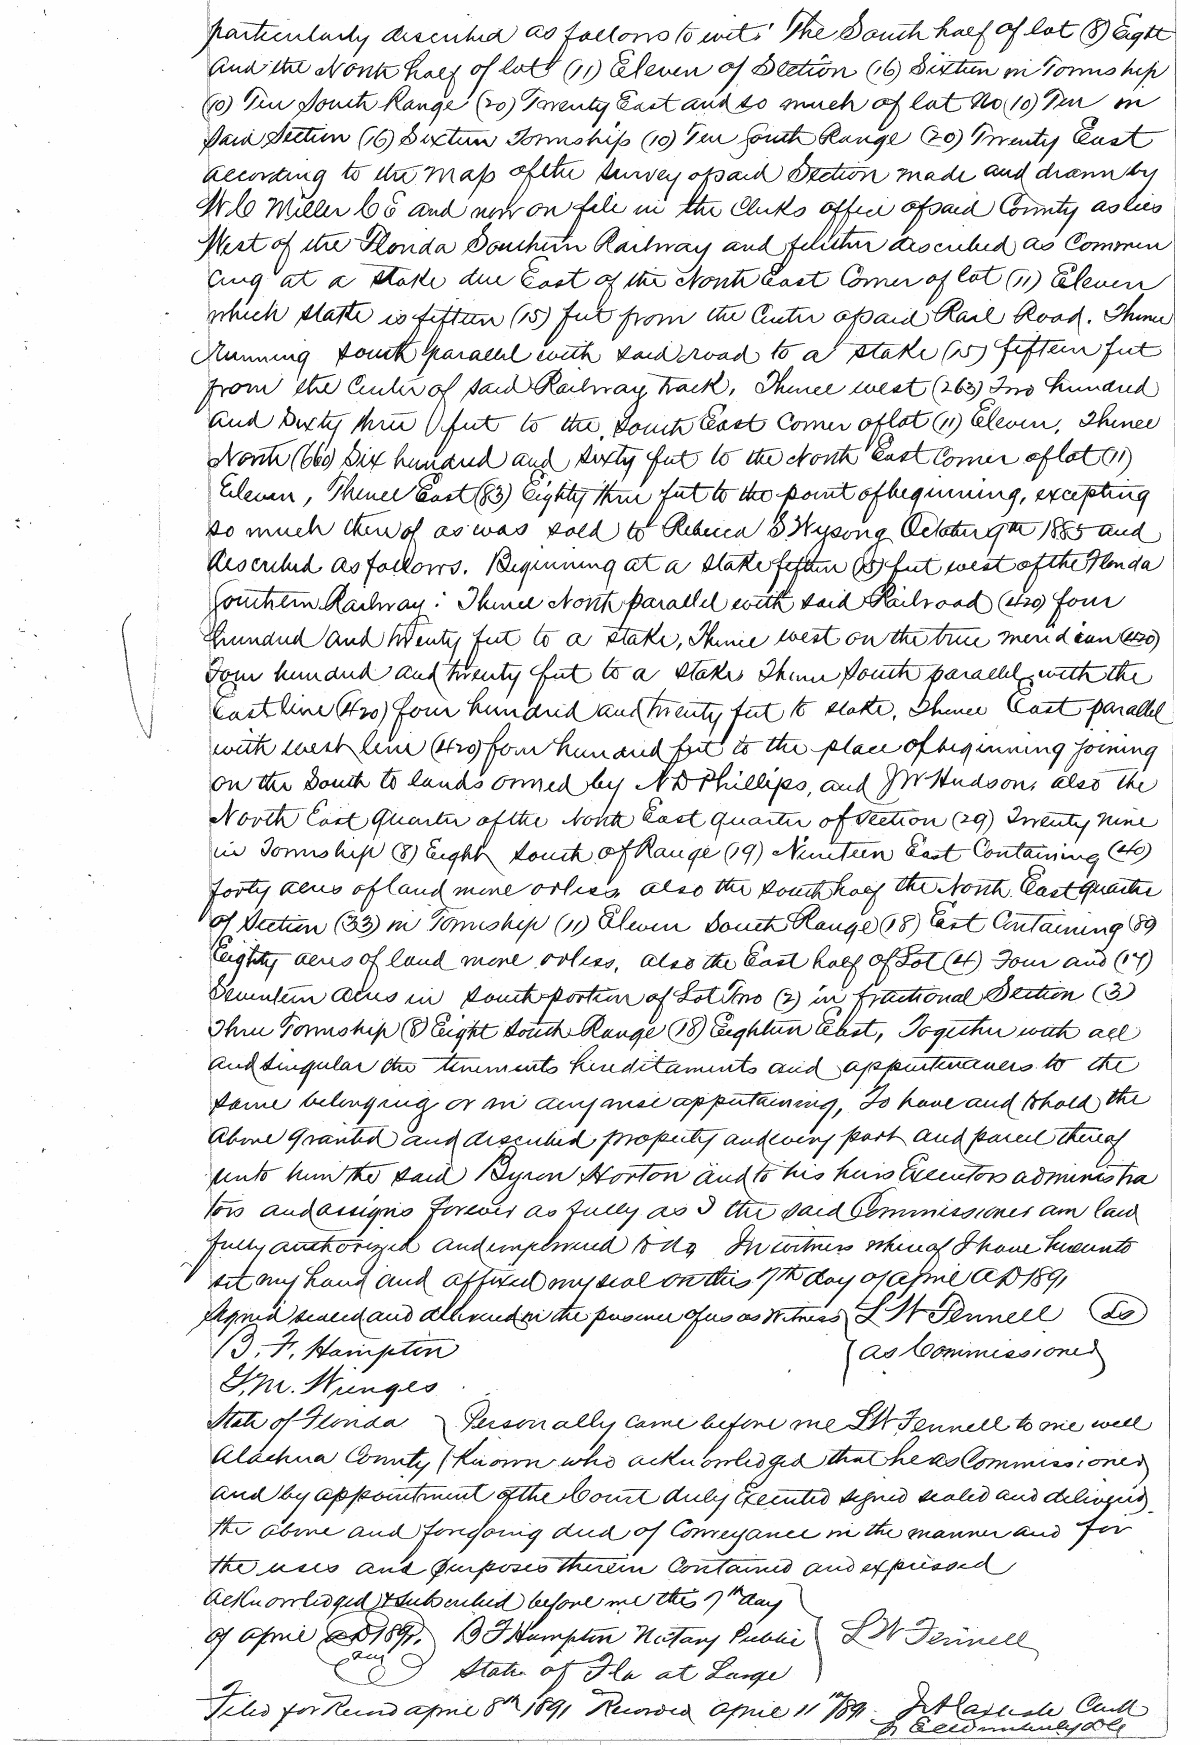 particularly described as follows to wit: The South half of lot (8) Eight
and the North half of lot (11) Eleven of Section (16) Sixteen in Township
(10) Ten South Range (20) Twenty East and so much of lot No (10) Ten in
said Section (16) Sixteen Township (10) Ten South Range (20) Twenty East
according to the map of the survey of said Section made and drawn by
W.C Miller C E and now on file in the Clerks office of said County as lies
West of the Florida Southern Railway and further described as Commen
cing at a stake due East of the North East Corner of lot (11) Eleven
which stake is fifteen (15) feet from the Center of said Rail Road. Thence
Running South parallel with said road to a stake (15) fifteen feet
from the Center of said Railway track, Thence west (263) Two hundred
and Sixty three feet to the South East Corner of lot (11) Eleven, Thence
North (660) Six hundred and sixty feet to the North East Corner of lot (11)
Eleven, Thence East (83) Eighty three feet to the point of beginning, excepting
so much there of as was sold to Rebecca S. Wysong October 9th 1885 and
described as follows. Beginning at a stake fifteen (15) feet west of the Florida
Southern Railway: Thence North parallel with said Railroad (420) four
hundred and twenty feet to a stake, Thence west on the true meridian (420)
Four hundred and twenty feet to a stake Thence South parallel with the
East line (420) four hundred and twenty feet to stake, Thence East parallel
with west line (420) four hundred feet to the place of beginning joining
on the South to lands owned by N D Phillips, and J W Hudson, also the
North East quarter of the North East quarter of section (29) Twenty nine
in Township (8) Eight South of Range (19) Nineteen East Containing (40)
forty acres of land more or less also the south half the North East quarter
of Section (33) in Township (11) Eleven South Range (18) East Containing (80
Eighty acres of land more or less, also the East half of Lot (4) Four and (17)
Seventeen acres in south portion of Lot Two (2) in fractional Section (3)
Three Township (8) Eight South Range (18) Eighteen East, Together with all
and singular the tenements hereditaments and appurtenances to the
same belonging or in anywise appertaining, To have and to hold the
above granted and described property and every part and parcel thereof
unto him the said Byron Horton and to his heirs Executors administra
tors and assigns forever as fully as I the said Commissioner am law
fully authorized and empowered to do In witness whereof I have hereunto
set my hand and affixed my seal on this 7th day of April AD 1891
Signed sealed and delivered in the presence of us as witness L W Fennell (LS)
B. F. Hampton as Commissioner
State of Florida Personally came before me L W Fennell to me well
Alachua County known who acknowledged that he as Commissioner
and by appointment of the Court duly Executed signed sealed and delivered
the above and foregoing deed of Conveyance in the manner and for
the uses and purposes therein Contained and expressed
Acknowledged & subscribed before me this 7th day
of April AD 1891. B F Hampton Notary Public L W Fennell
State of Fla at Large
Filed for Record April 8th 1891 Recorded April 11th /891 Clerk